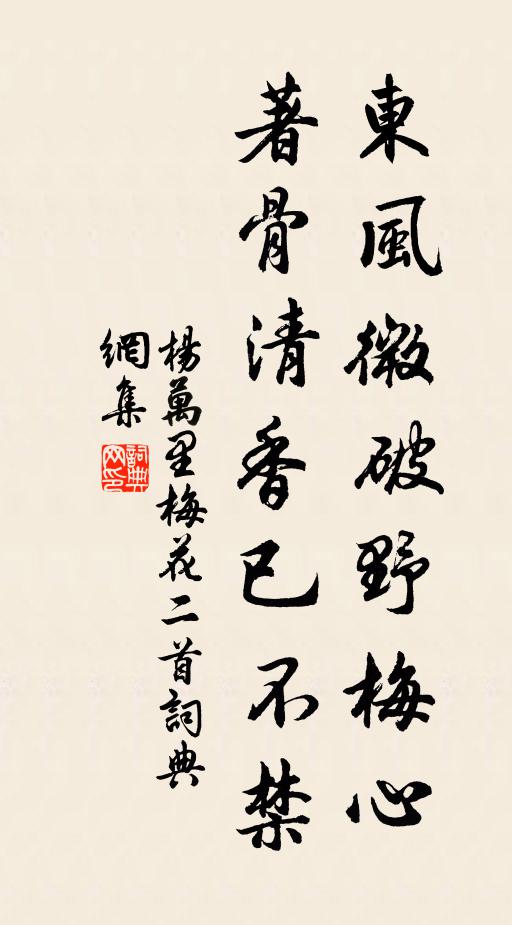 東風微破野梅心
著骨清香已不禁
楊萬里梅花二首詞典
網集
詞典
网印